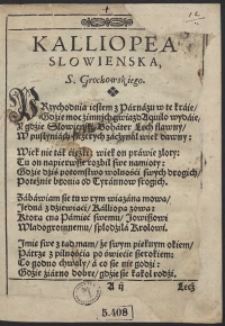 KALLIOPEA
SLOWIENSKA,
S. Grochowskiego.
PRzychodnia iestem z Párnázu w te kráie/
Gdzie moc zimnych gwiazd Aquilo wydáie/
gdzie Słowieński Boháter Lech sławny/
W pustyniách szczerych záczynał wiek dawny:
Wiek nie ták ciężki/ wiek on práwie złoty:
Tu on napierwsze rozbił swe namioty:
Gdzie dziś potomstwo wolności swych drogich/
Potężnie broniá od Tyránnow srogich.
Zábáwiam sie tu w tym wiazána mowá/
Jedná z dziewiaci/ Kálliopa zowá:
Ktora cna Pámięć swemu/ Jowiszowi
Wladogromnemu/ spłodziłá Krolowi.
Imię swe z tąd mam/ że swym pieknym okiem/
Pátrze z pilnością po świecie szerokiem:
Co godno chwały/ á co sie nie godzi:
Gdzie ziárno dobre/ gdzie sie kakol rodzi.
A ij Lecz
5.408